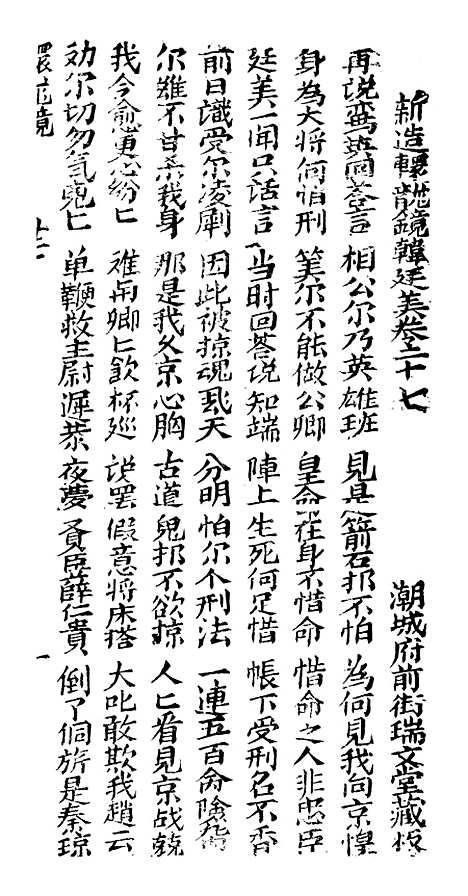 新造輾龍鏡韓廷美卷二十七 潮城府前街瑞文堂藏板
再说鸾英回答言 相公尔乃英雄班 見是箭石扣不怕 為何見我向京惶
身為大将何怕刑 笑尔不能做公卿 皇命在身不惜命 惜命之人非忠臣
廷美一闻只话言 当时回答说知端 陣上生死何足惜 帳下受刑名不香
前日識受尔凌 因此被掠魂飛天 分明怕尔个刑法 一連五百命陰
尔雖不甘杀我身 那是我久京心胸 古道兒扣不欲掠 人匕看見京战兢
我今愈更心紛匕 难用卿匕飲杯巡 说罢假意将床搭 大叱敢欺我趙云
劝尔切勿气兜匕 单鞭救主尉遲恭 夜夢賢臣薛仁貴 倒了侗旂是秦琼
龍鏡 十二 一